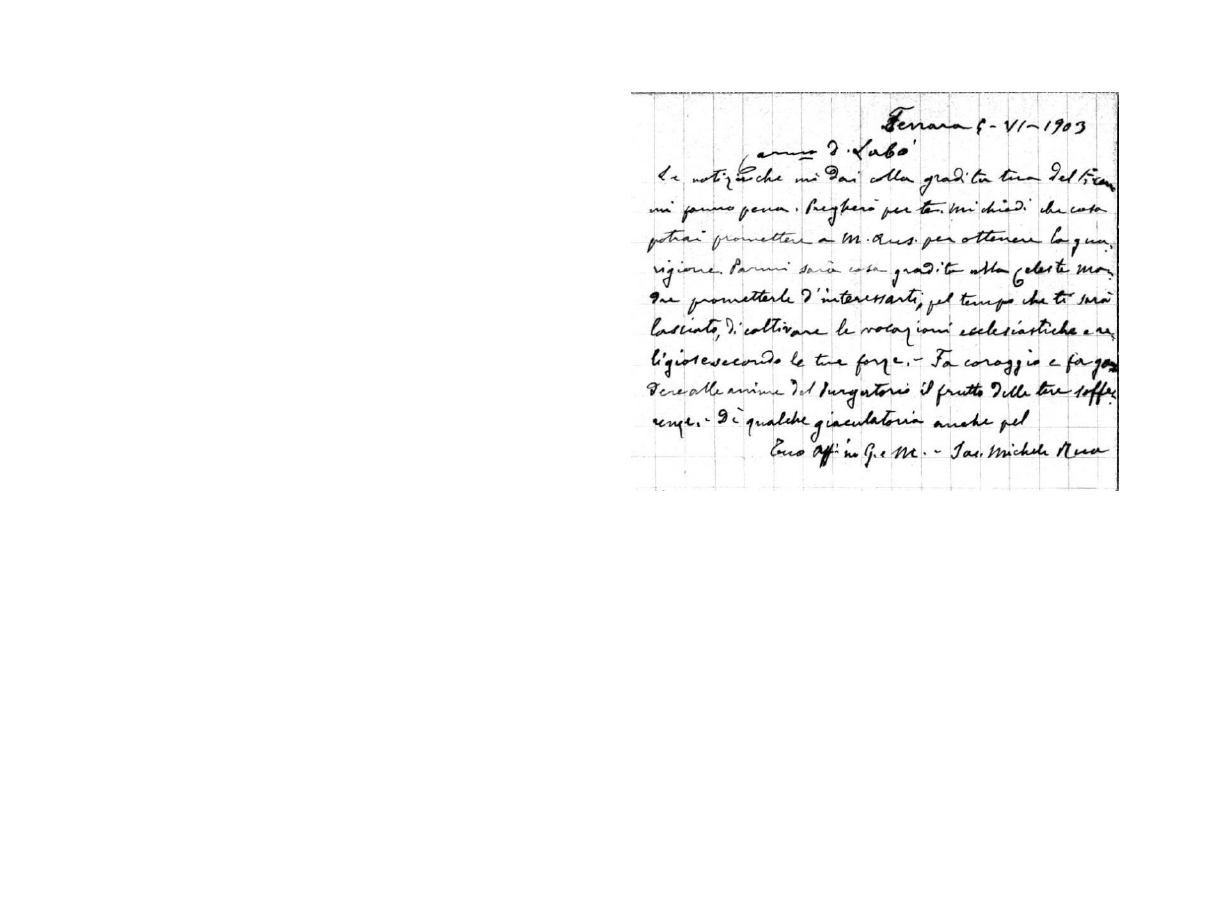 Ferrara 5-VI-1903
Carmo D. Labò
Le notizie che mi dai colla gradita tua del
mi fanno pena. Pregherò per te. Mi chiedi che cosa
potrai promettere a M. Aus. per ottenere la gua-
rigione. Parmi sarà cosa gradita alla Celeste Ma-
dre prometterle d'interessarti, pel tempo che ti sarà
lasciato, di coltivare le vocazioni ecclesiastiche e re-
ligiose secondo le tue forze. - Fa coraggio e fa go-
dere alle anime del Purgatorio il frutto delle tue soffe-
renze. - Dì qualche giaculatoria anche pel
Tuo Aff.mo in G. e M. - Sac. Michele Rua